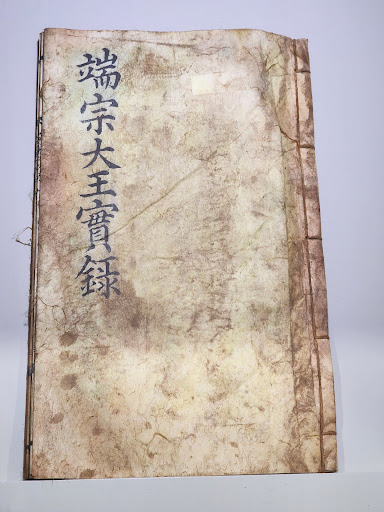 端宗大王實錄